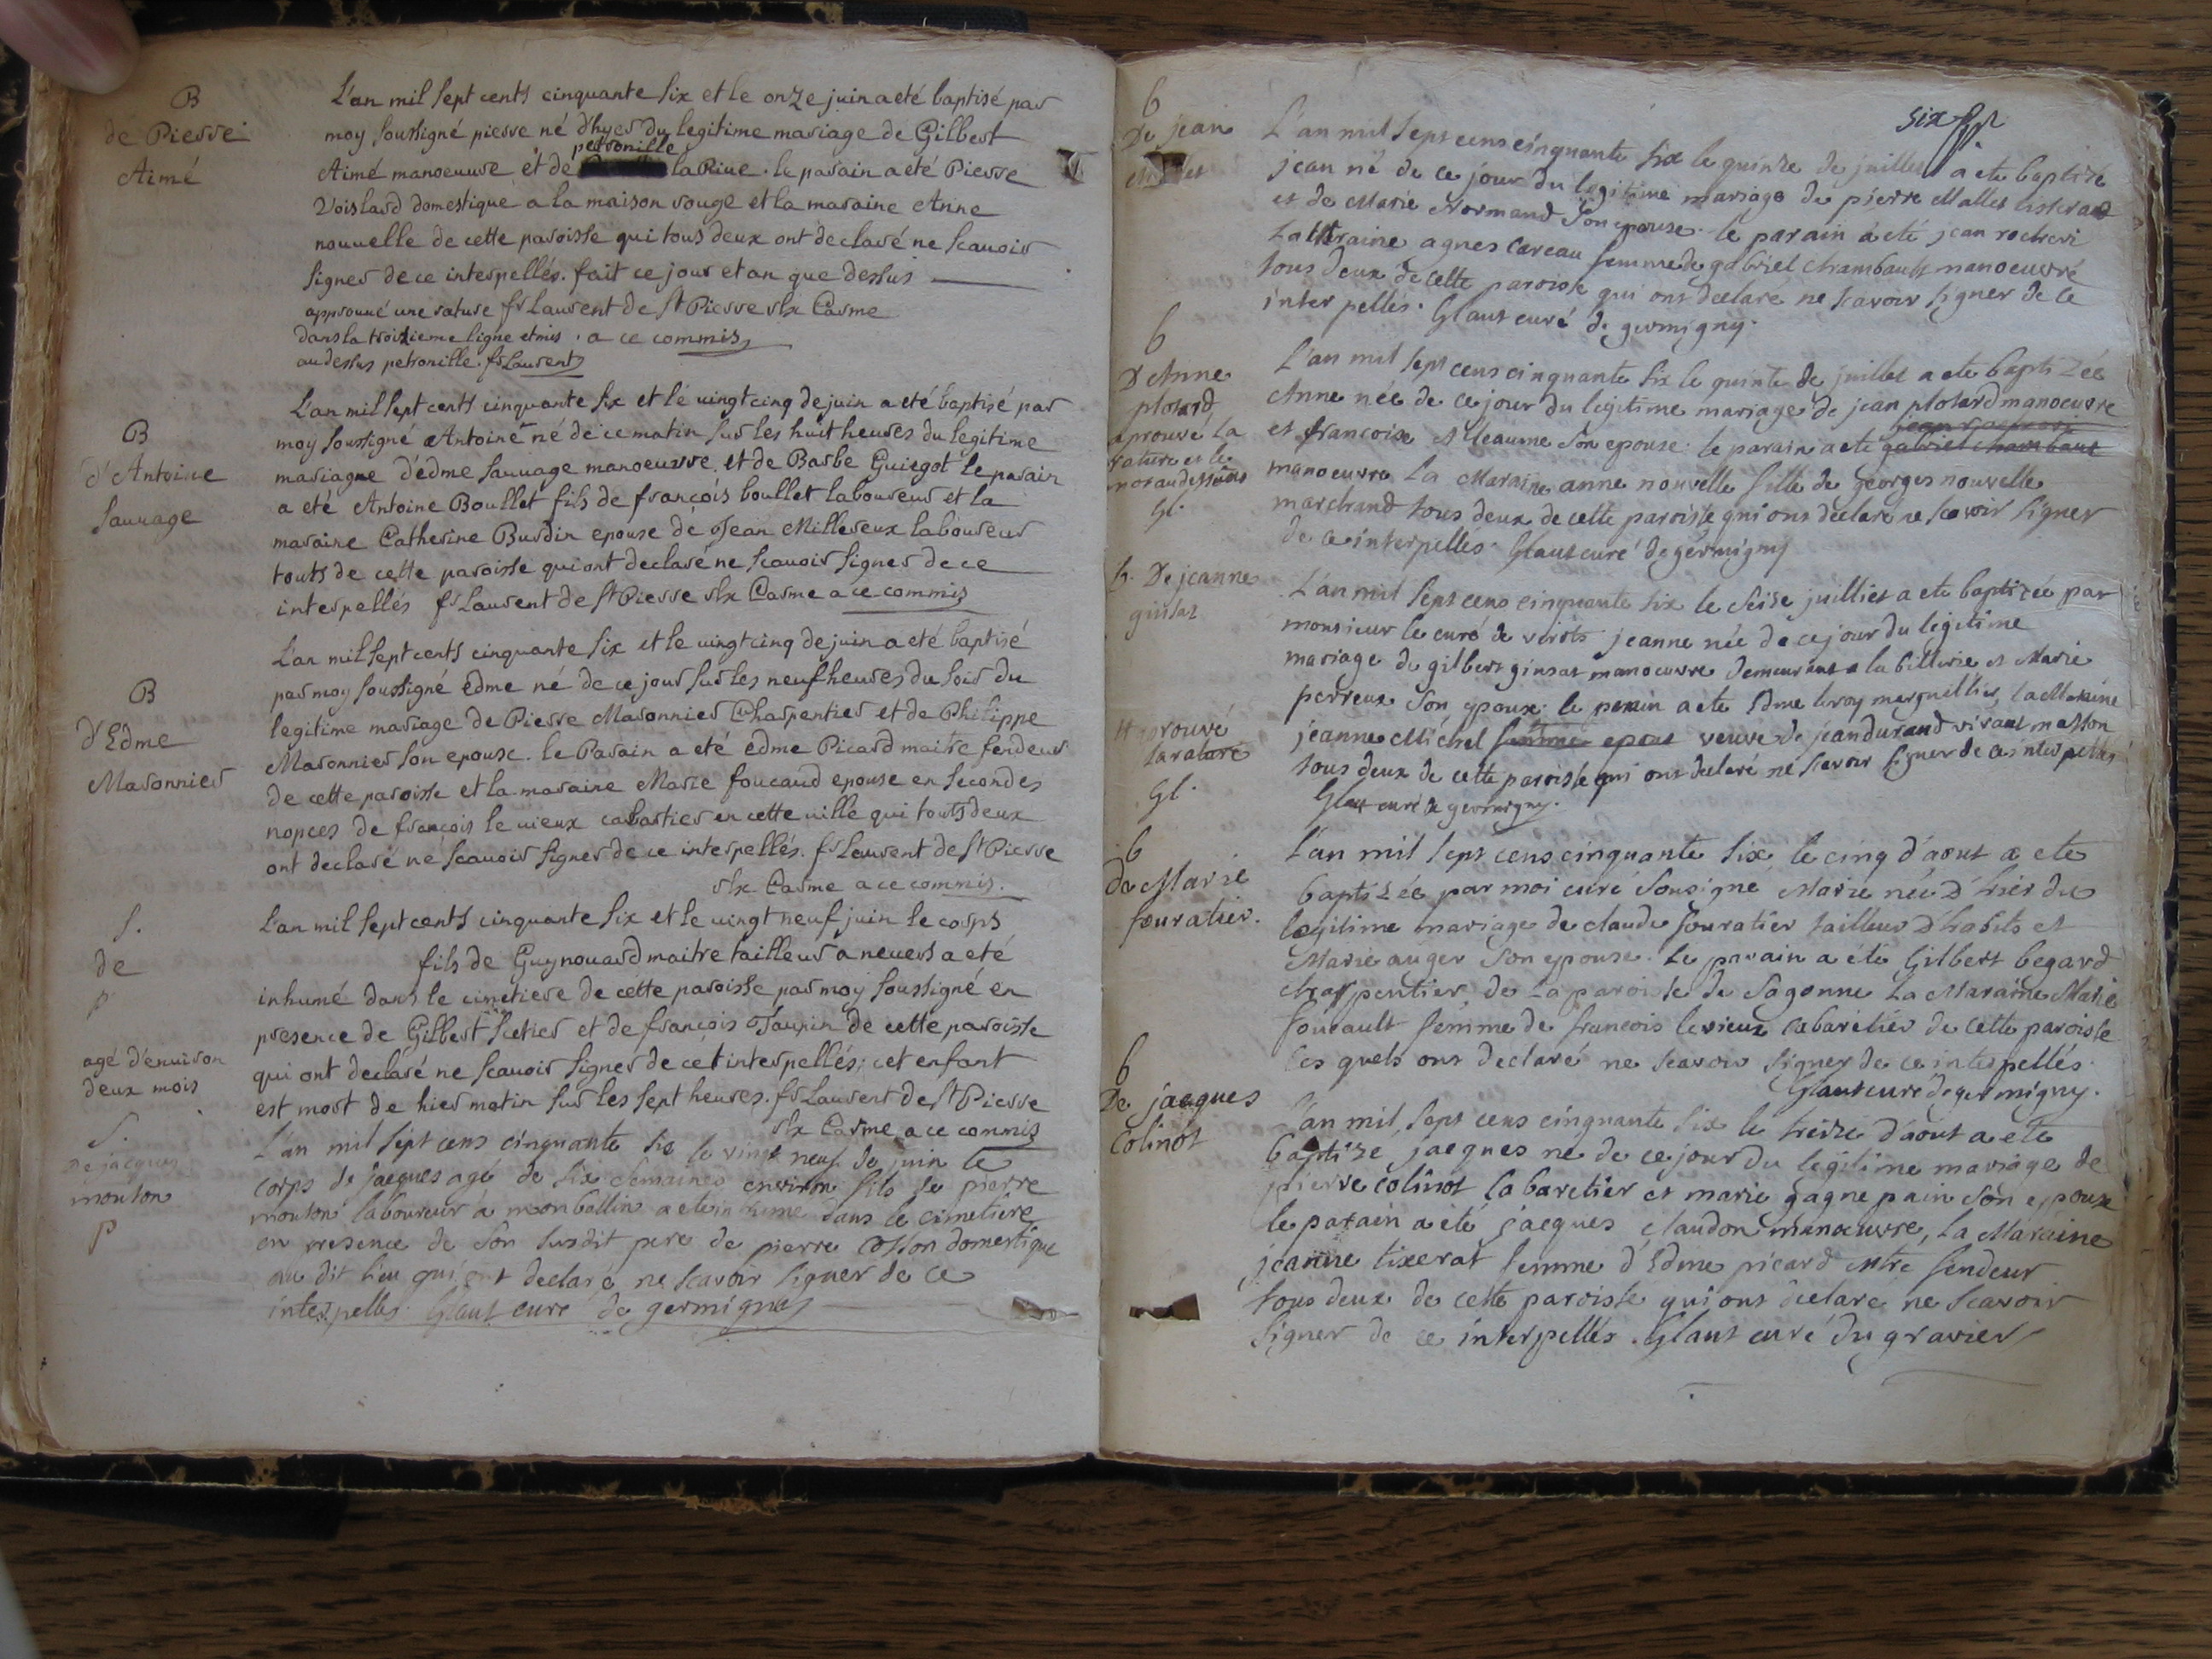 B
de Pierre
Aimé
L'an mil sept cents cinquante six et le onze juin a eté baptisé par
moy soussigné pierre né d'hyer du legitime mariage de Gilbert
petronille
Aimé manoeuvre et de la Rive. le parain a eté Pierre
Voislard domestique a la maison rouge et la maraine Anne
nouvelle de cette paroisse qui tous deux ont declaré ne scavoir
signer de ce interpellés. fait ce jour et an que dessus
approuvé une rature fr Laurent de St Pierre Carme
dans la troizieme ligne et mis. a ce commis
au dessus petronille. fr Laurent
B
d'Antoine
sauvage
L'an mil sept cents cinquante six et le vingt cinq de juin a eté baptisé par
moy soussigné Antoine né de ce matin sur les huit heures du legitime
mariagne d'edme sauvage manoeuvre et de Barbe Guiegot le parain
a eté Antoine Boullet fils de françois boullet laboureur et la
maraine Catherine Burdin epouse de Jean Millereux laboureur
touts de cette paroisse qui ont declaré ne scauoir signer de ce
interpellés fr Laurent de St Pierre Carme a ce commis
B
d'Edme
Maronnier
L'an mil sept cents cinquante six et le vingt cinq de juin a eté baptisé
par moy soussigné edme né de ce jour sur les neuf heures du soir du
legitime mariage de Pierre Maronnier Charpentier et de Philippe
Maronnier son epouse. le Parain a eté edme Picard maitre fendeur
de cette paroisse et la maraine Marie foucaud epouse en secondes
nopces de françois le vieux cabartier en cette ville qui touts deux
ont declaré ne scauoir signer de ce interpellés. fr Laurent de St Pierre
Carme a ce commis.
S.
de
p
agé d'environ
deux mois
L'an mil sept cents cinquante six et le vingt neuf juin le corps
fils de Guy nouard maitre tailleur a nevers a eté
inhumé dans le cimetiere de cette paroisse par moy soussigné en
presence de Gilbert et de françois Taupin de cette paroisse
qui ont declaré ne scauoir signer de cét interpellés; cet enfant
est mort de hier matin sur les sept heures. fr Laurent de St Pierre
Carme a ce commis
S.
De jacques
mouton
p
L'an mil sept cens cinquante six le vingt neuf de juin le
corps de jacques agé de six semaines environ fils de pierre
mouton laboureur a monballin a ete inhumé dans le cimetiere
en presence de son susdit pere de pierre cosson domestique
au dit lieu qui ont declaré ne scavoir signer de ce
interpellés. Glaut curé de germigny
six
b
De jean
L'an mil sept cens cinquante six le quinze de juillet a ete baptize
jean né de ce jour du legitime mariage de pierre Mallet
et de Marie Normand son epouse. le parain a eté jean
La Maraine agnes Careau femme de gabriel chambault manoeuvre
tous deux de cette paroisse qui ont declaré ne scavoir signer de ce
interpellés. Glaut curé de germigny.
b
D'Anne
plotard
aprouvé la
rature et le
mot au dessus
Gl.
L'an mil sept cens cinquante six le quinze de juillet a ete baptizée
Anne née de ce jour du legitime mariage de jean plotard manoeuvre
et francoise Aleaume son epouse. le parain a ete gabriel chambaut
manoeuvre La Maraine anne nouvelle fille de georges nouvelle
marchand tous deux de cette paroisse qui ont declaré ne scavoir signer
de ce interpelles. Glaut curé de germigny
b. De jeanne
ginsat
aprouvé
la rature
Gl.
L'an mil sept cens cinquante six le seise juilliet a ete baptizée par
monsieur le curé de jeanne née de ce jour du legitime
mariage de gilbert ginsat manoeuvre demeurant a la billerie et Marie
perreux son epoux. le parain a ete Edme leroy marguillier, la Maraine
jeanne Michel femme epous veuve de jean durand vivant masson
tous deux de cette paroisse qui ont declaré ne scavoir signer de ce interpellés
Glaut curé de germigny.
b
de Marie
fouratier.
L'an mil sept cens cinquante six le cinq d'aout a ete
baptizée par moi curé sousigné Marie née d'hier du
legitime mariage de claude fouratier tailleur d'habits et
Marie auger son epouse. Le parain a été Gilbert begard
charpentier de la paroisse de Sagonne La Maraine Marie
foucault femme de francois levieux cabaretier de cette paroisse
lesquels ont declaré ne scavoir signer de ce interpellés
Glaut curé de germigny.
b
De jacques
Colinot
L'an mil sept cens cinquante six le treize d'aout a ete
baptize jacques né de ce jour du legitime mariage de
pierre colinot cabaretier et marie gagnepain son epoux
le parain a été jacques claudon manoeuvre, La Maraine
jeanne tixerat femme d'Edme picard mtre fendeur
tous deux de cette paroisse qui ont declaré ne scavoir
signer de ce interpellés. Glaut curé du gravier